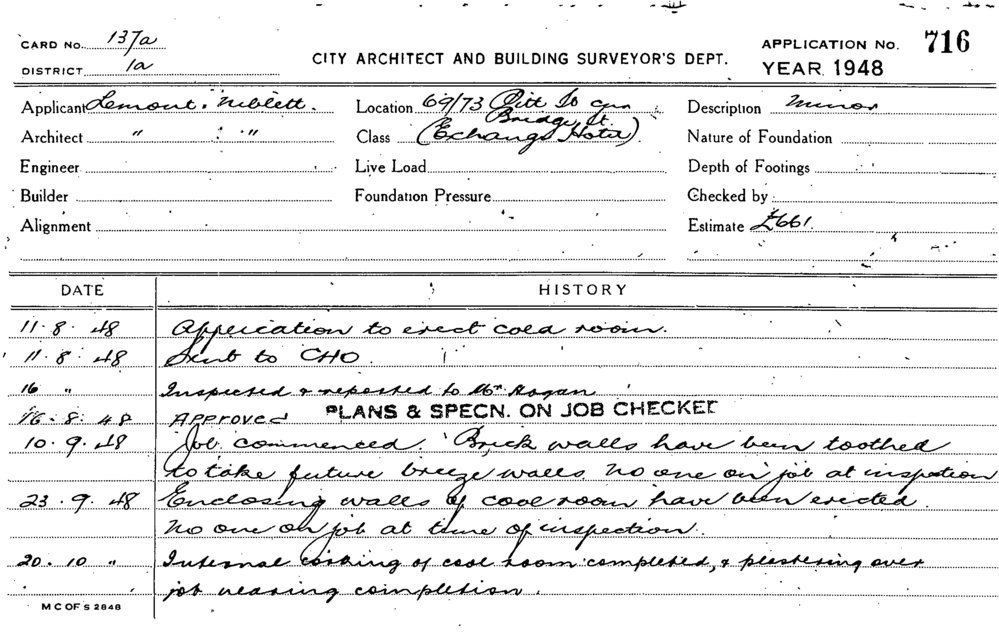 CARD No. 137a
DISTRICT 1a
CITY ARCHITECT AND BUILDING SURVEYOR'S DEPT.
APPLICATION No. 716
YEAR 1948
Applicant Lemont & Niblett. Location 69/73 Pitt St cnr Description Minor
Bridge St.
Architect " : " Class (Exchange Hotel) Nature of Foundation
Engineer Live Load Depth of Footings
Builder Foundation Pressure Checked by
Alignment Estimate £661.
DATE HISTORY
11.8.48 Application to erect cold room.
11.8.48 Sent to CHO.
16 " Inspected & reported to Mr Hogan
16.8.48 Approved PLANS & SPECN. ON JOB CHECKED
10.9.48 Job commenced. Brick walls have been toothed
to take future breeze walls. No one on job at inspection
23.9.48 Enclosing walls of cool room have been erected.
No one on job at time of inspection.
20.10 " Internal corking of cool room completed, & plastering over
job nearing completion.
M C OF S 2848